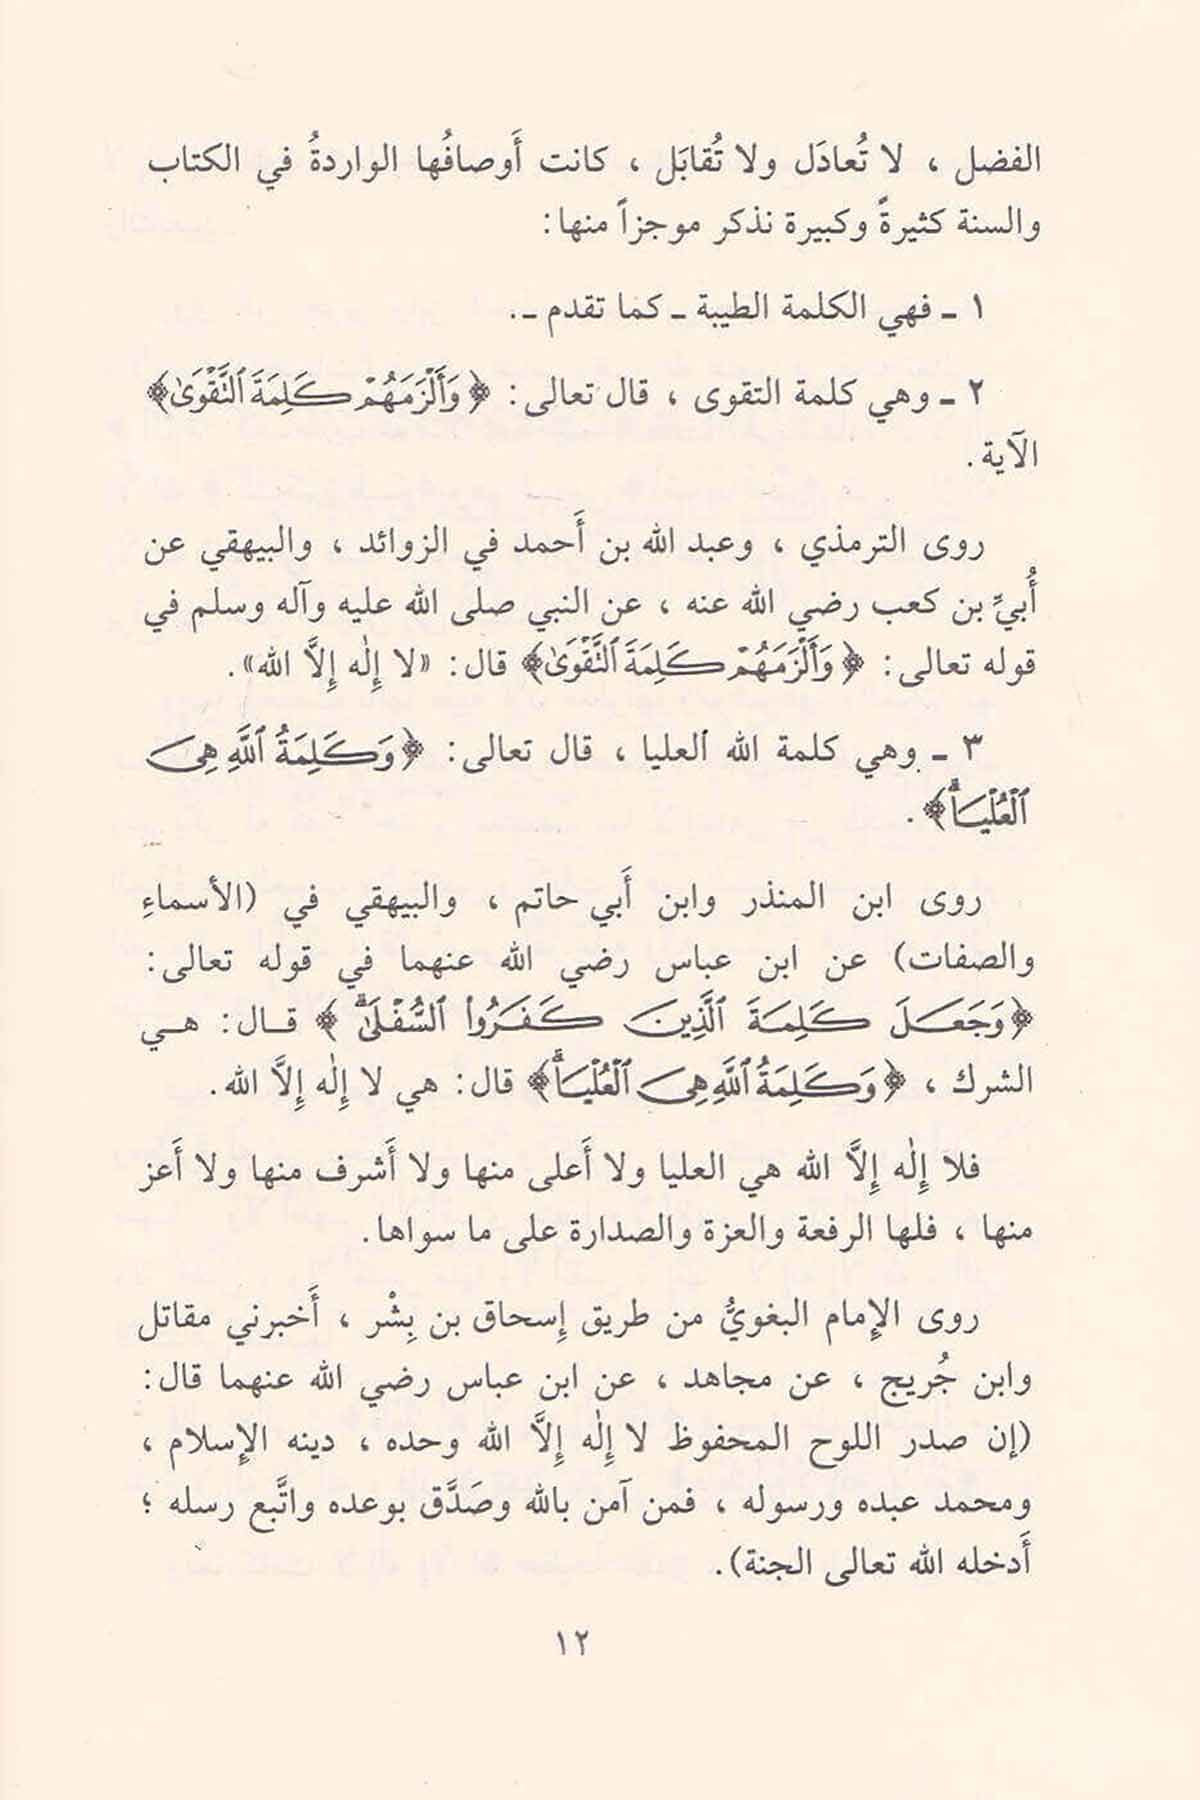 الفضل ، لا تُعادَل ولا تُقابَل ، كانت أَوصافُها الواردةُ في الكتاب
والسنة كثيرةً وكبيرة نذكر موجزاً منها:
١ ـ فهي الكلمة الطيبة ـ كما تقدم ـ.
٢ ـ وهي كلمة التقوى ، قال تعالى: ﴿ وَأَلْزَمَهُمْ كَلِمَةَ ٱلتَّقْوَىٰ﴾
الآية.
روى الترمذي ، وعبد الله بن أَحمد في الزوائد ، والبيهقي عن
أُبيٍّ بن كعب رضي الله عنه ، عن النبي صلى الله عليه وآله وسلم في
قوله تعالى: ﴿ وَأَلْزَمَهُمْ كَلِمَةَ ٱلتَّقْوَىٰ﴾ قال: «لا إِلٰه إِلاَّ الله».
٣ ـ وهي كلمة الله العليا ، قال تعالى: ﴿وَكَلِمَةُ ٱللَّهِ هِىَ
ٱلْعُلْيَاۗ﴾ .
روى ابن المنذر وابن أَبي حاتم ، والبيهقي في (الأسماءِ
والصفات) عن ابن عباس رضي الله عنهما في قوله تعالى:
﴿وَجَعَلَ كَلِمَةَ ٱلَّذِينَ كَفَرُوا۟ ٱلسُّفْلَىٰۗ ﴾ قال: هي
الشرك ، ﴿ وَكَلِمَةُ ٱللَّهِ هِىَ ٱلْعُلْيَاۗ﴾ قال: هي لا إِلٰه إِلاَّ الله.
فلا إِلٰه إِلاَّ الله هي العليا ولا أَعلى منها ولا أَشرف منها ولا أَعز
منها ، فلها الرفعة والعزة والصدارة على ما سواها.
روى الإِمام البغويُّ من طريق إِسحاق بن بِشْر ، أَخبرني مقاتل
وابن جُريج ، عن مجاهد ، عن ابن عباس رضي الله عنهما قال:
(إن صدر اللوح المحفوظ لا إِلٰه إِلاَّ الله وحده ، دينه الإِسلام ،
ومحمد عبده ورسوله ، فمن آمن بالله وصَدَّق بوعده واتَّبع رسله ؛
أَدخله الله تعالى الجنة).
١٢